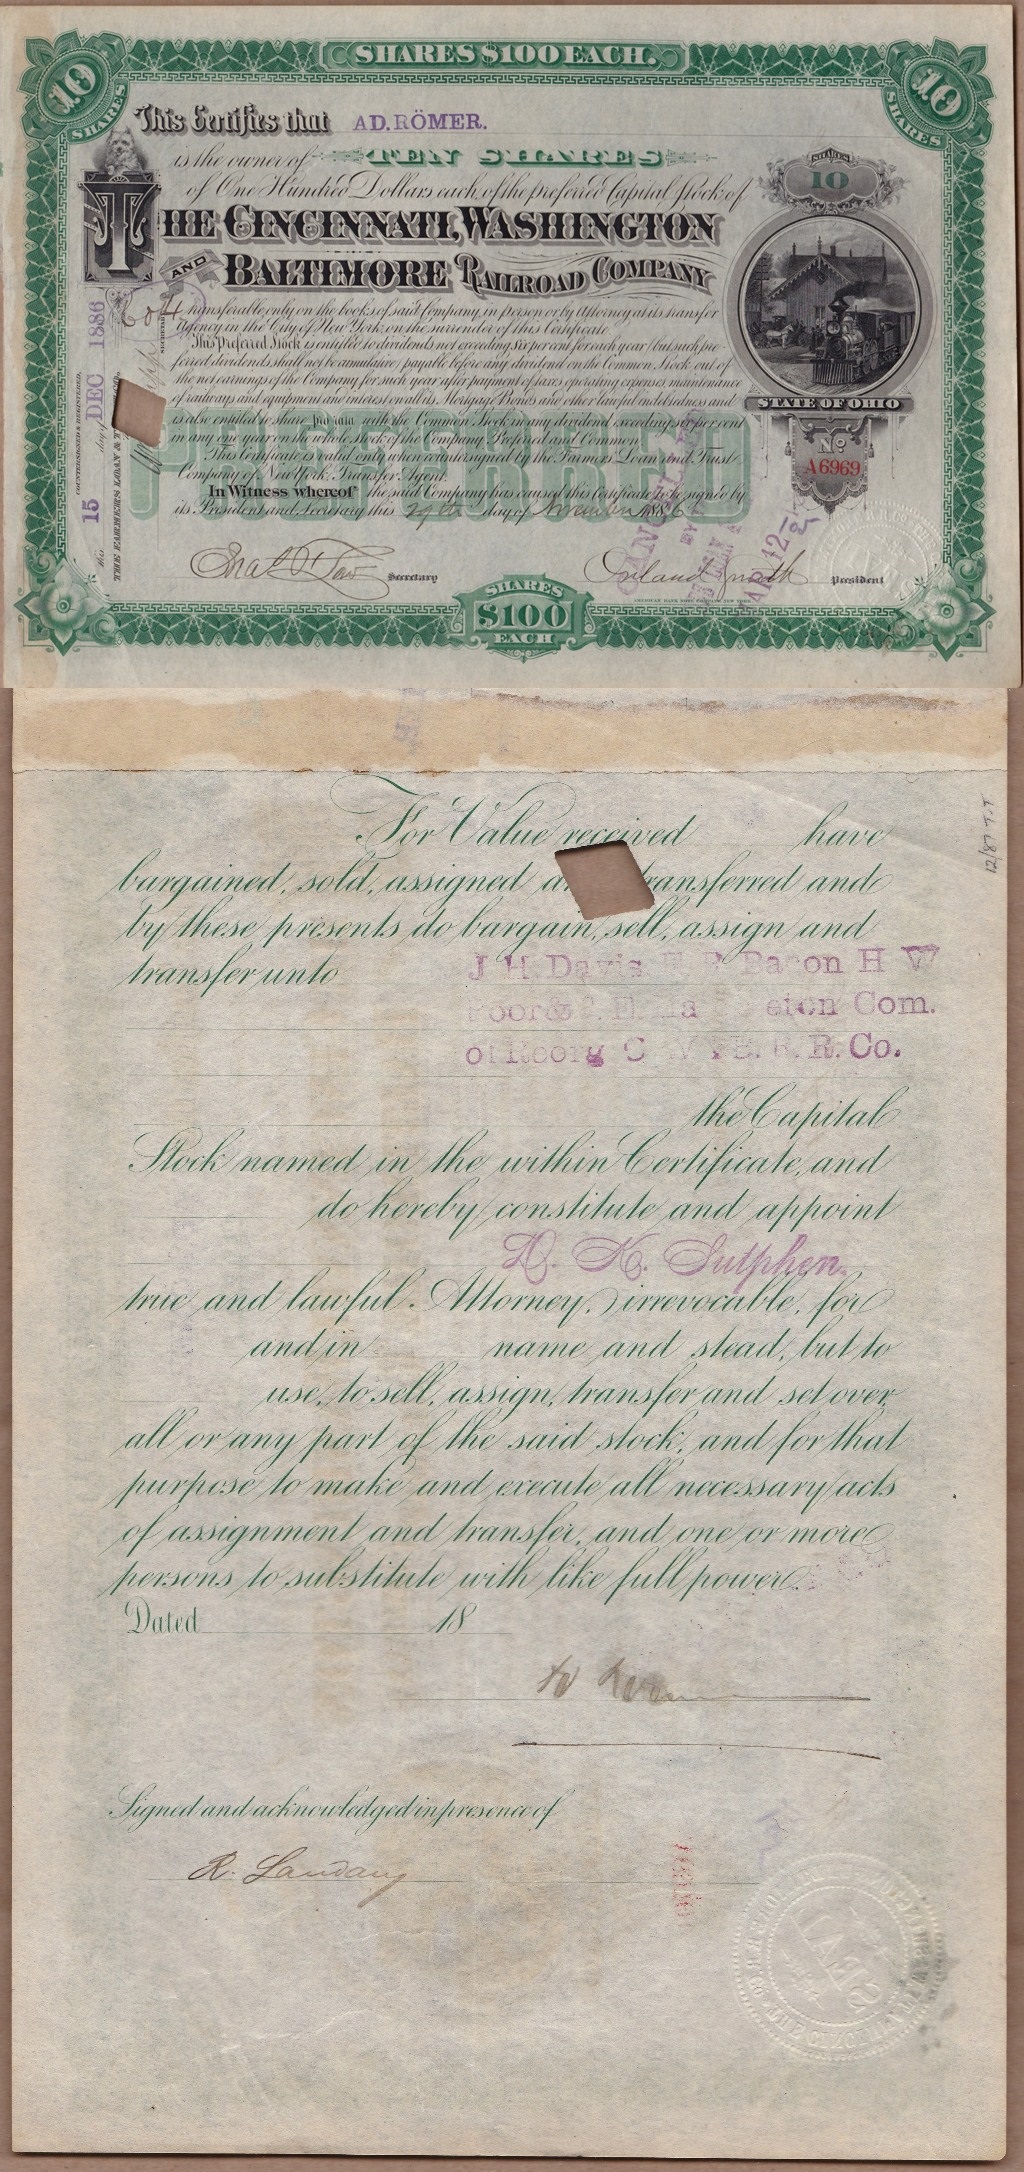 SHARES $100 EACH.
10
SHARES
10
SHARES
This Certifies that AD. RÖMER.
is the owner of TEN SHARES
of One Hundred Dollars each, of the preferred Capital Stock of
THE CINCINNATI, WASHINGTON
AND BALTIMORE RAILROAD COMPANY
transferable, only on the books of said Company, in person or by Attorney at its transfer
Agency in the City of New York, on the surrender of this Certificate.
This Preferred Stock is entitled to dividends not exceeding six per cent for each year, but such pre-
ferred dividends shall not be cumulative, payable before any dividend on the Common Stock out of
the net earnings of the Company for such year after payment of taxes operating expenses, maintenance
of railways and equipment and interest on all its Mortgage Bonds and other lawful indebtedness and
is also entitled to share pro rata with the Common Stock in any dividend exceeding six per cent
in any one year on the whole stock of the Company Preferred and Common.
This Certificate is valid only when countersigned by the Farmers' Loan and Trust
Company of New York, Transfer Agent.
In Witness whereof the said Company has caused this Certificate to be signed by
its President and Secretary this 29th day of November 1886
PREFERRED
Secretary
President
AMERICAN BANK NOTE COMPANY, NEW YORK.
SHARES
$100
EACH
SHARES
10
STATE OF OHIO
No
A6969
COUNTERSIGNED & REGISTERED,
this 15 day of DEC 1886
THE FARMERS LOAN & T
APR 12
For Value received have
bargained, sold, assigned a transferred and
by these presents do bargain, sell, assign and
transfer unto J H. Davis Bacon H W
Com.
of Reorg R. R. Co.
the Capital
Stock named in the within Certificate, and
do hereby constitute and appoint
D. K. Sutphen.
true and lawful Attorney, irrevocable, for
and in name and stead, but to
use, to sell, assign, transfer and set over,
all or any part of the said stock, and for that
purpose to make and execute all necessary acts
of assignment and transfer, and one or more
persons to substitute with like full power.
Dated 18
Signed and acknowledged in presence of
SEAL